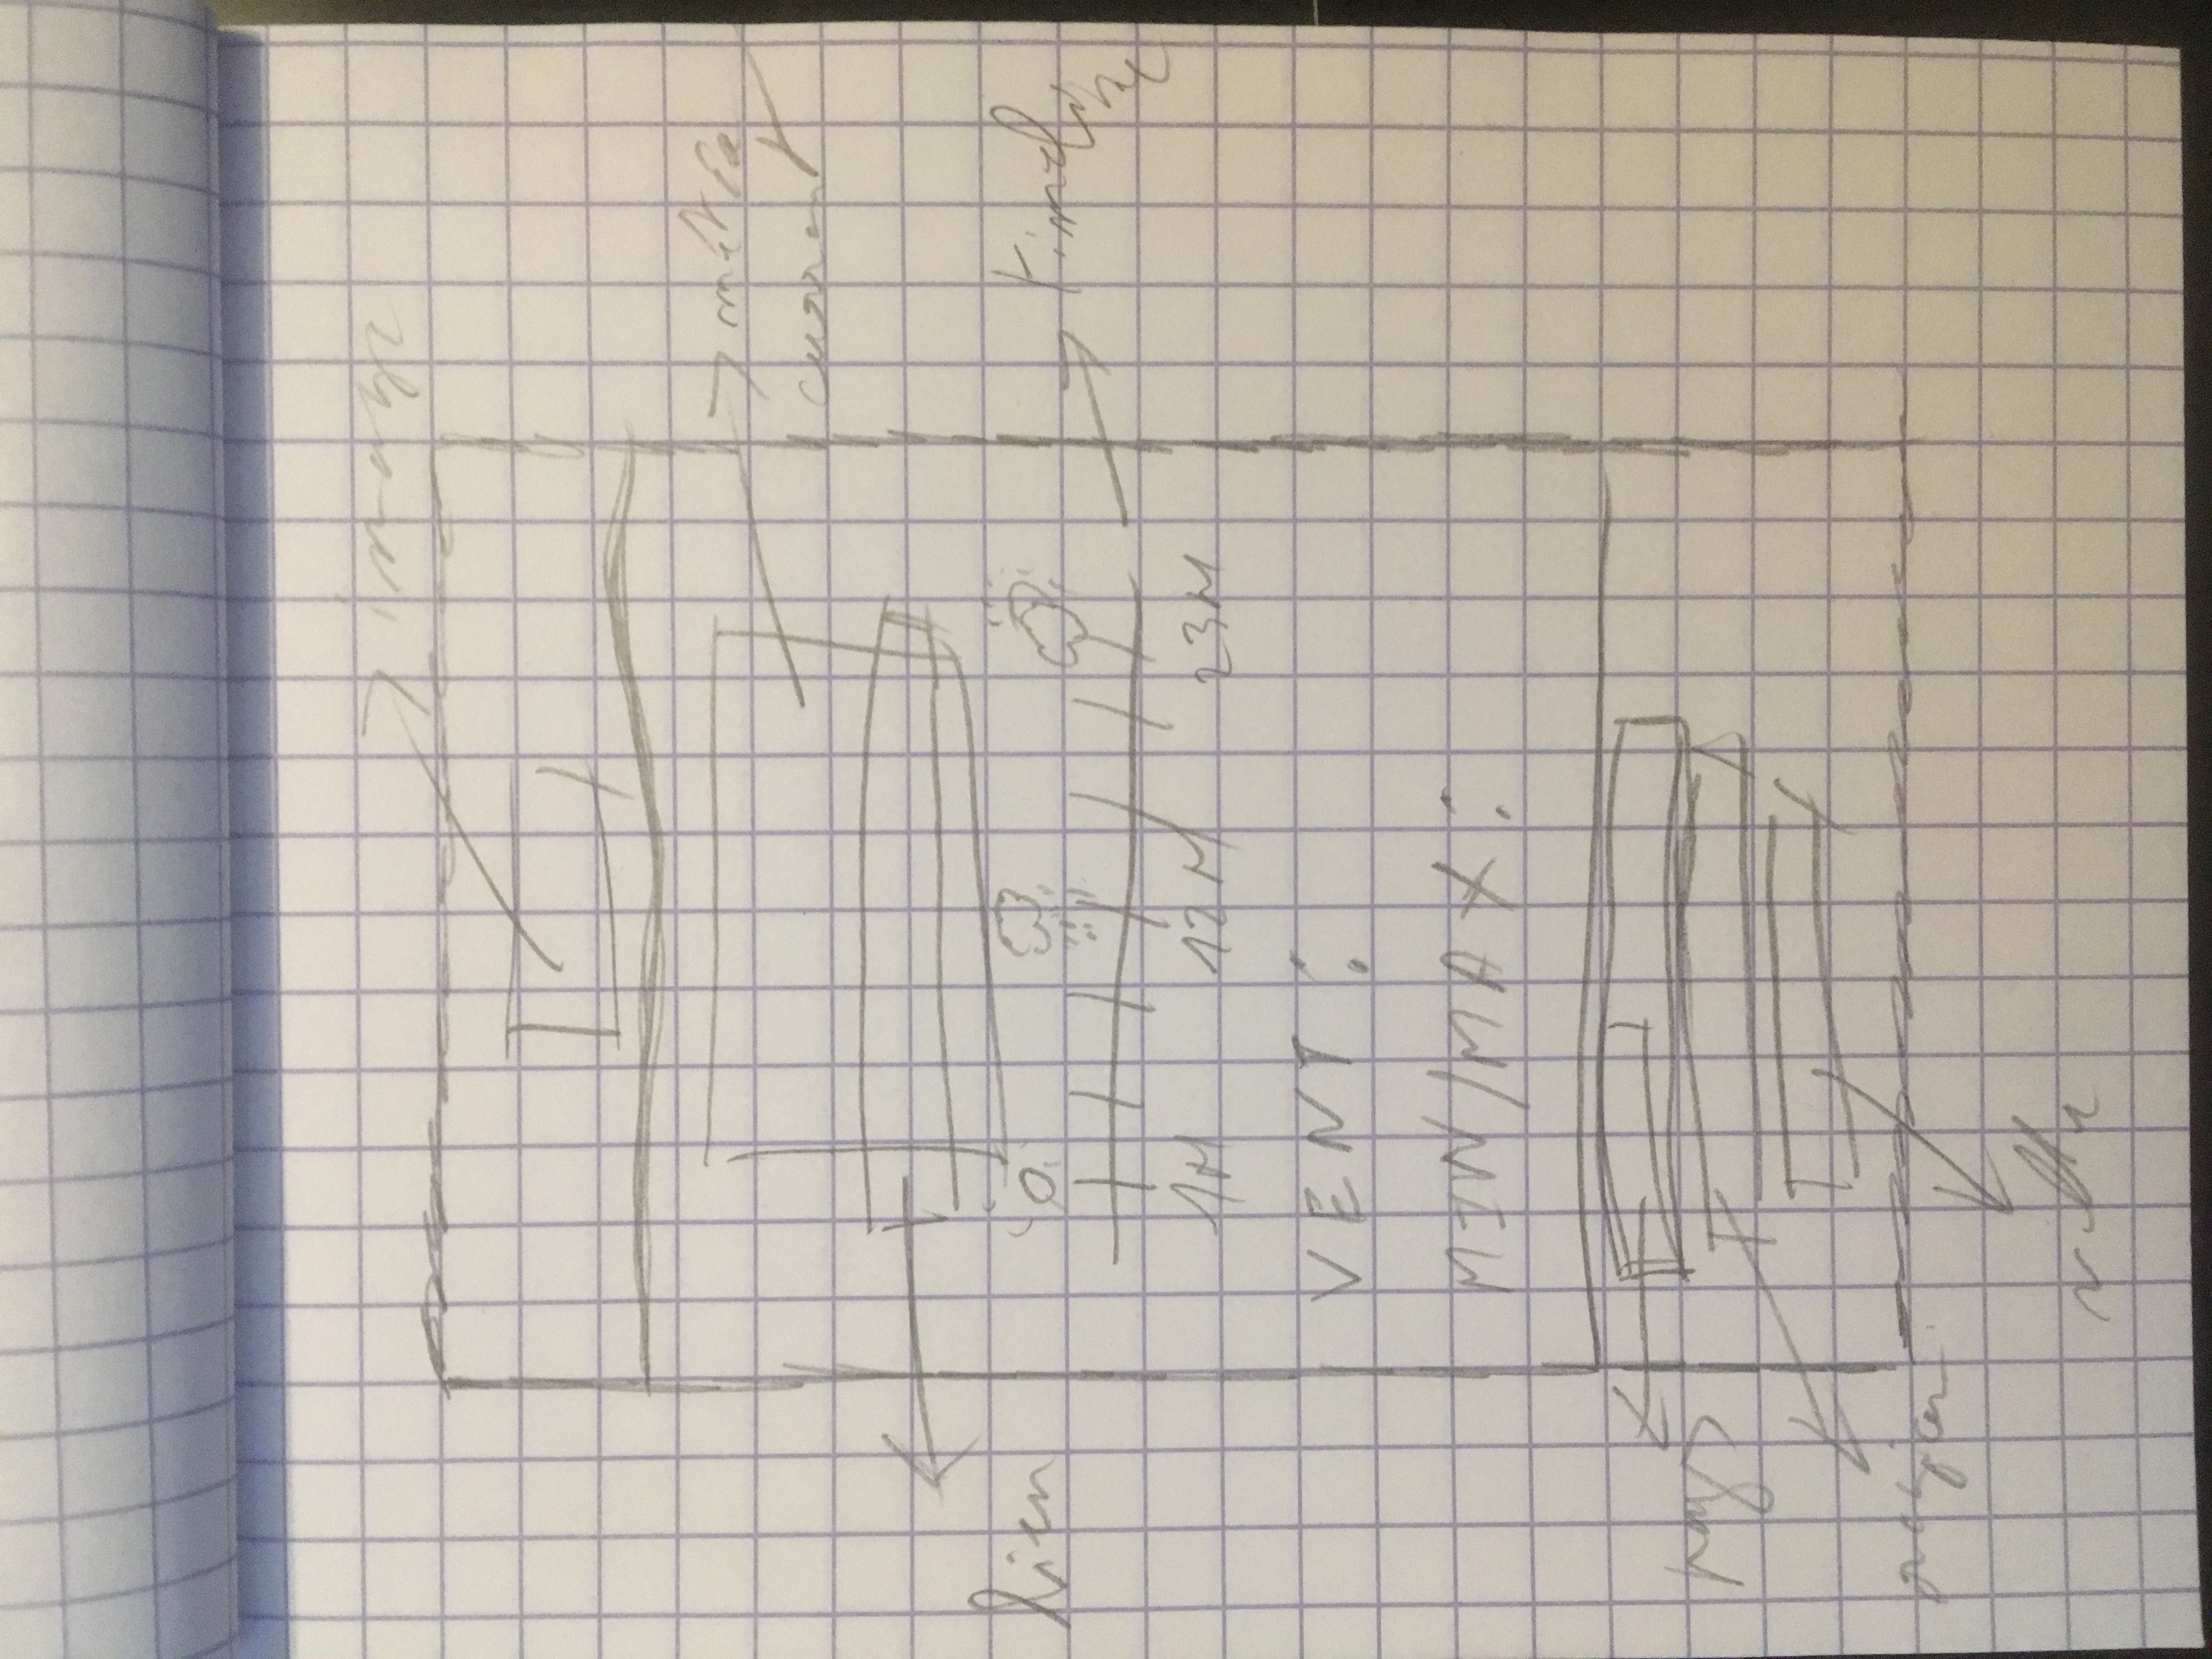 image
météo
current
lien
timeline
1H 12H 23H
VENT :
MIN/MAX :
pays
region
ville